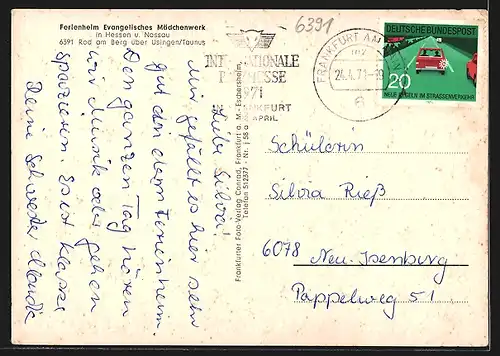 Ferienheim Evangelisches Mädchenwerk
in Hessen u. Nassau
6391 Rod am Berg über Usingen/Taunus
6391
INTERNATIONALE
PELZMESSE
71
FRANKFURT
APRIL
FRANKFURT AM MAIN
24.4.71
DEUTSCHE BUNDESPOST
20
NEUE REGELN IM STRASSENVERKEHR
Frankfurter Foto-Verlag Conrad, Frankfurt a. M.-Eschersheim
Telefon 512377
Liebe Silvia!
Mir gefällt es hier sehr
gut in dem Ferienheim.
Den ganzen Tag hören
wir Musik oder gehen
spazieren. Es ist klasse
Deine Schwester Claudia
Schülerin
Silvia Rieß
6078 Neu-Isenburg
Pappelweg 51